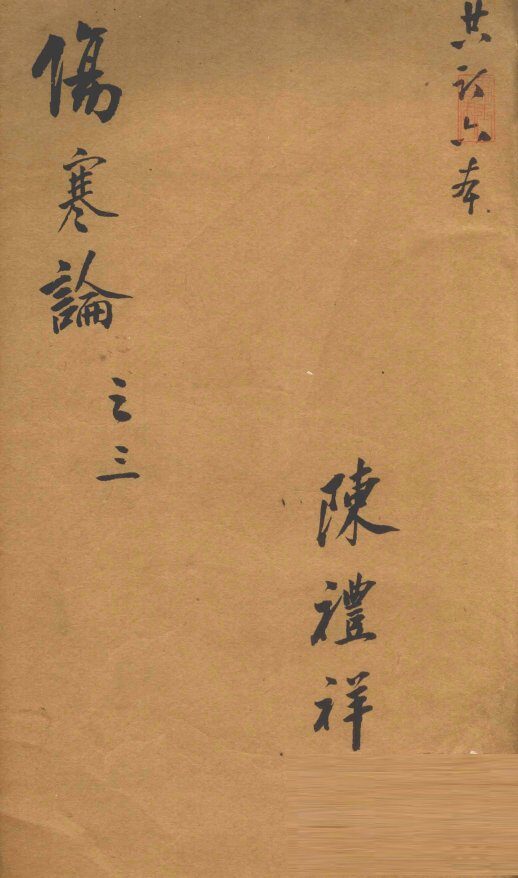 共計六本
傷寒論
之三
陳禮祥